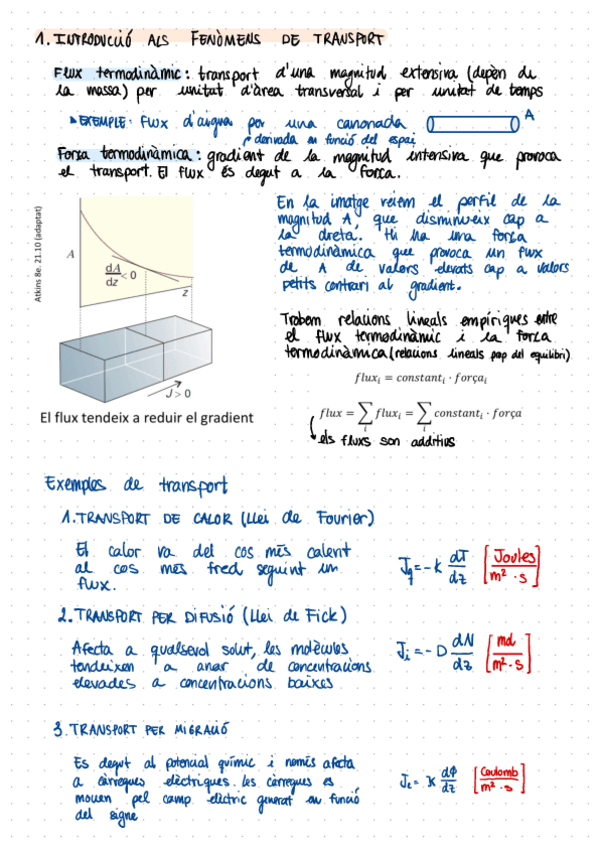 1. INTRODUCCIÓ ALS FENÒMENS DE TRANSPORT
Flux termodinàmic: transport d'una magnitud extensiva (depèn de
la massa) per unitat d'àrea transversal i per unitat de temps
EXEMPLE: Flux d'aigua por una canonada A
derivada en funció del espai
Força termodinàmica: gradient de la magnitud intensiva que provoca
el transport. El flux és degut a la força.
Atkins 8e. 21.10 (adaptat)
A
dA/dz < 0
z
J > 0
El flux tendeix a reduir el gradient
En la imatge veiem el perfil de la
magnitud A, que disminueix cap a
la dreta. Hi ha una força
termodinàmica que provoca un flux
de A de valors elevats cap a valors
petits contrari al gradient.
Trobem relacions lineals empíriques entre
el flux termodinàmic i la força
termodinàmica (relacions lineals prop del equilibri)
flux_i = constant_i · força_i
flux = ∑_i flux_i = ∑_i constant_i · força
els fluxs son additius
Exemples de transport
1. TRANSPORT DE CALOR (Llei de Fourier)
El calor va del cos més calent
al cos més fred seguint un
flux.
J_q = - K dT/dz [Joules/m² · s]
2. TRANSPORT PER DIFUSIÓ (Llei de Fick)
Afecta a qualsevol solut, les molècules
tendeixen a anar de concentracions
elevades a concentracions baixes
J_i = - D dN/dz [mol/m² · s]
3. TRANSPORT PER MIGRACIÓ
Es degut al potencial químic i només afecta
a càrregues elèctriques. les càrregues es
mouen pel camp elèctric generat en funció
del signe
J_c = K dΦ/dz [Coulomb/m² · s]